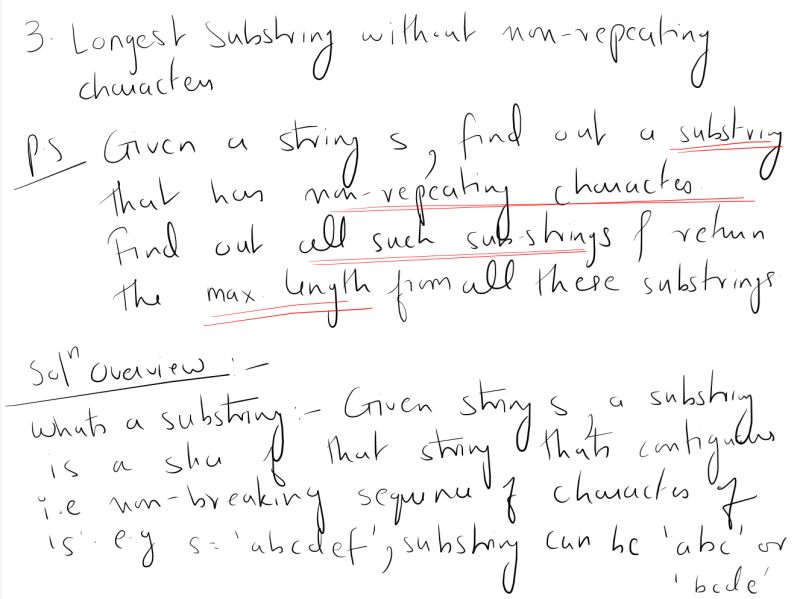 3. Longest Substring without non-repeating
characters
P.S Given a string s, find out a substring
that has non-repeating characters.
Find out all such sub-strings & return
the max length from all these substrings
Solⁿ Overview :-
Whats a substring :- Given string s, a substring
is a of that string thats contiguous
i.e non-breaking sequence of characters of
's'. e.g s = 'abcdef', substring can be 'abc' or
'bcde'